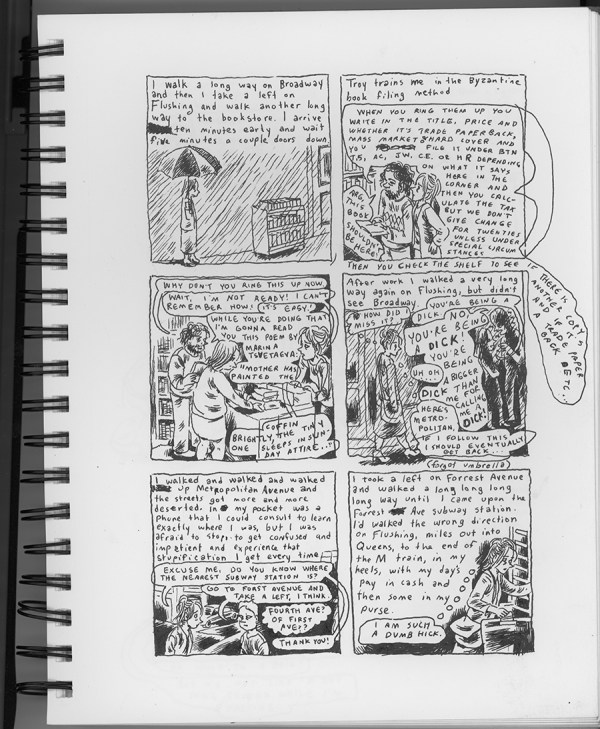 I walk a long way on Broadway
and then I take a left on
Flushing and walk another long
way to the bookstore. I arrive
ten minutes early and wait
five minutes a couple doors down.
Troy trains me in the Byzantine
book filing method
WHEN YOU RING THEM UP YOU
WRITE IN THE TITLE, PRICE AND
WHETHER IT'S TRADE PAPERBACK,
MASS MARKET & HARD COVER AND
YOU FILE IT UNDER BTN
JS, AC, JW, CE, OR HR DEPENDING
ON WHAT IT SAYS
HERE IN THE
CORNER AND
THEN YOU CALC-
ULATE THE TAX
BUT WE DON'T
GIVE CHANGE
FOR TWENTIES
UNLESS UNDER
SPECIAL CIRCUM
STANCES
THEN YOU CHECK THE SHELF TO SEE
IF THERE IS
ANOTHER COPY
AND IF IT'S
A TRADE PAPER
BACK
ETC..
ARG,
THIS
BOOK
SHOULDN'T
BE HERE!
WHY DON'T YOU RING THIS UP NOW.
WAIT, I'M NOT READY! I CAN'T
REMEMBER HOW!
IT'S EASY!
WHILE YOU'RE DOING THAT
I'M GONNA READ
YOU THIS POEM BY
MARINA
TSVETAEVA:
"MOTHER HAS
PAINTED THE
COFFIN
BRIGHTLY, THE TINY
ONE SLEEPS IN SUN-
DAY ATTIRE..."
After work I walked a very long
way again on Flushing, but didn't
see Broadway.
HOW DID I
MISS IT?
YOU'RE BEING A
DICK, NO,
YOU'RE BEING
A DICK!
YOU'RE
BEING
A BIGGER
DICK THAN
ME FOR
CALLING
ME A
DICK!
UH OH,
HERE'S
METRO-
POLITAN.
IF I FOLLOW THIS
I SHOULD EVENTUALLY
GET BACK...
(forgot umbrella)
I walked and walked and walked
up Metropolitan Avenue and
the streets got more and more
deserted. In my pocket was a
phone that I could consult to learn
exactly where I was, but I was
afraid to stop, to get confused and
impatient and experience that
stupification I get every time
EXCUSE ME, DO YOU KNOW WHERE
THE NEAREST SUBWAY STATION IS?
GO TO FORST AVENUE AND
TAKE A LEFT, I THINK.
FOURTH AVE?
OF FIRST
AVE??
THANK YOU!
I took a left on Forrest Avenue
and walked a long long long
long way until I came upon the
Forrest Ave subway station.
I'd walked the wrong direction
on Flushing, miles out into
Queens, to the end of
the M train, in my
heels, with my day's
pay in cash and
then some in my
purse.
I AM SUCH
A DUMB HICK.